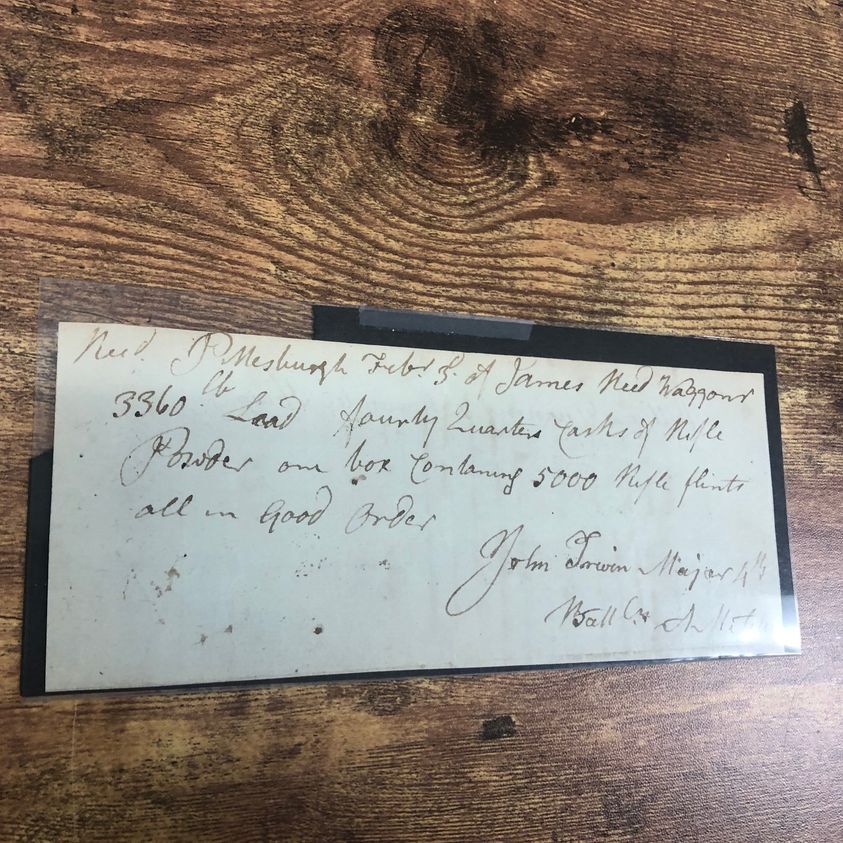 Recd. Pittesburgh Febr. 3. of James Reed Waggoner
3360 lb Lead fourty Quarter Casks of Rifle
Powder one box Contaning 5000 Rifle flints
all in Good Order
John Irwin Major 4th
Batt